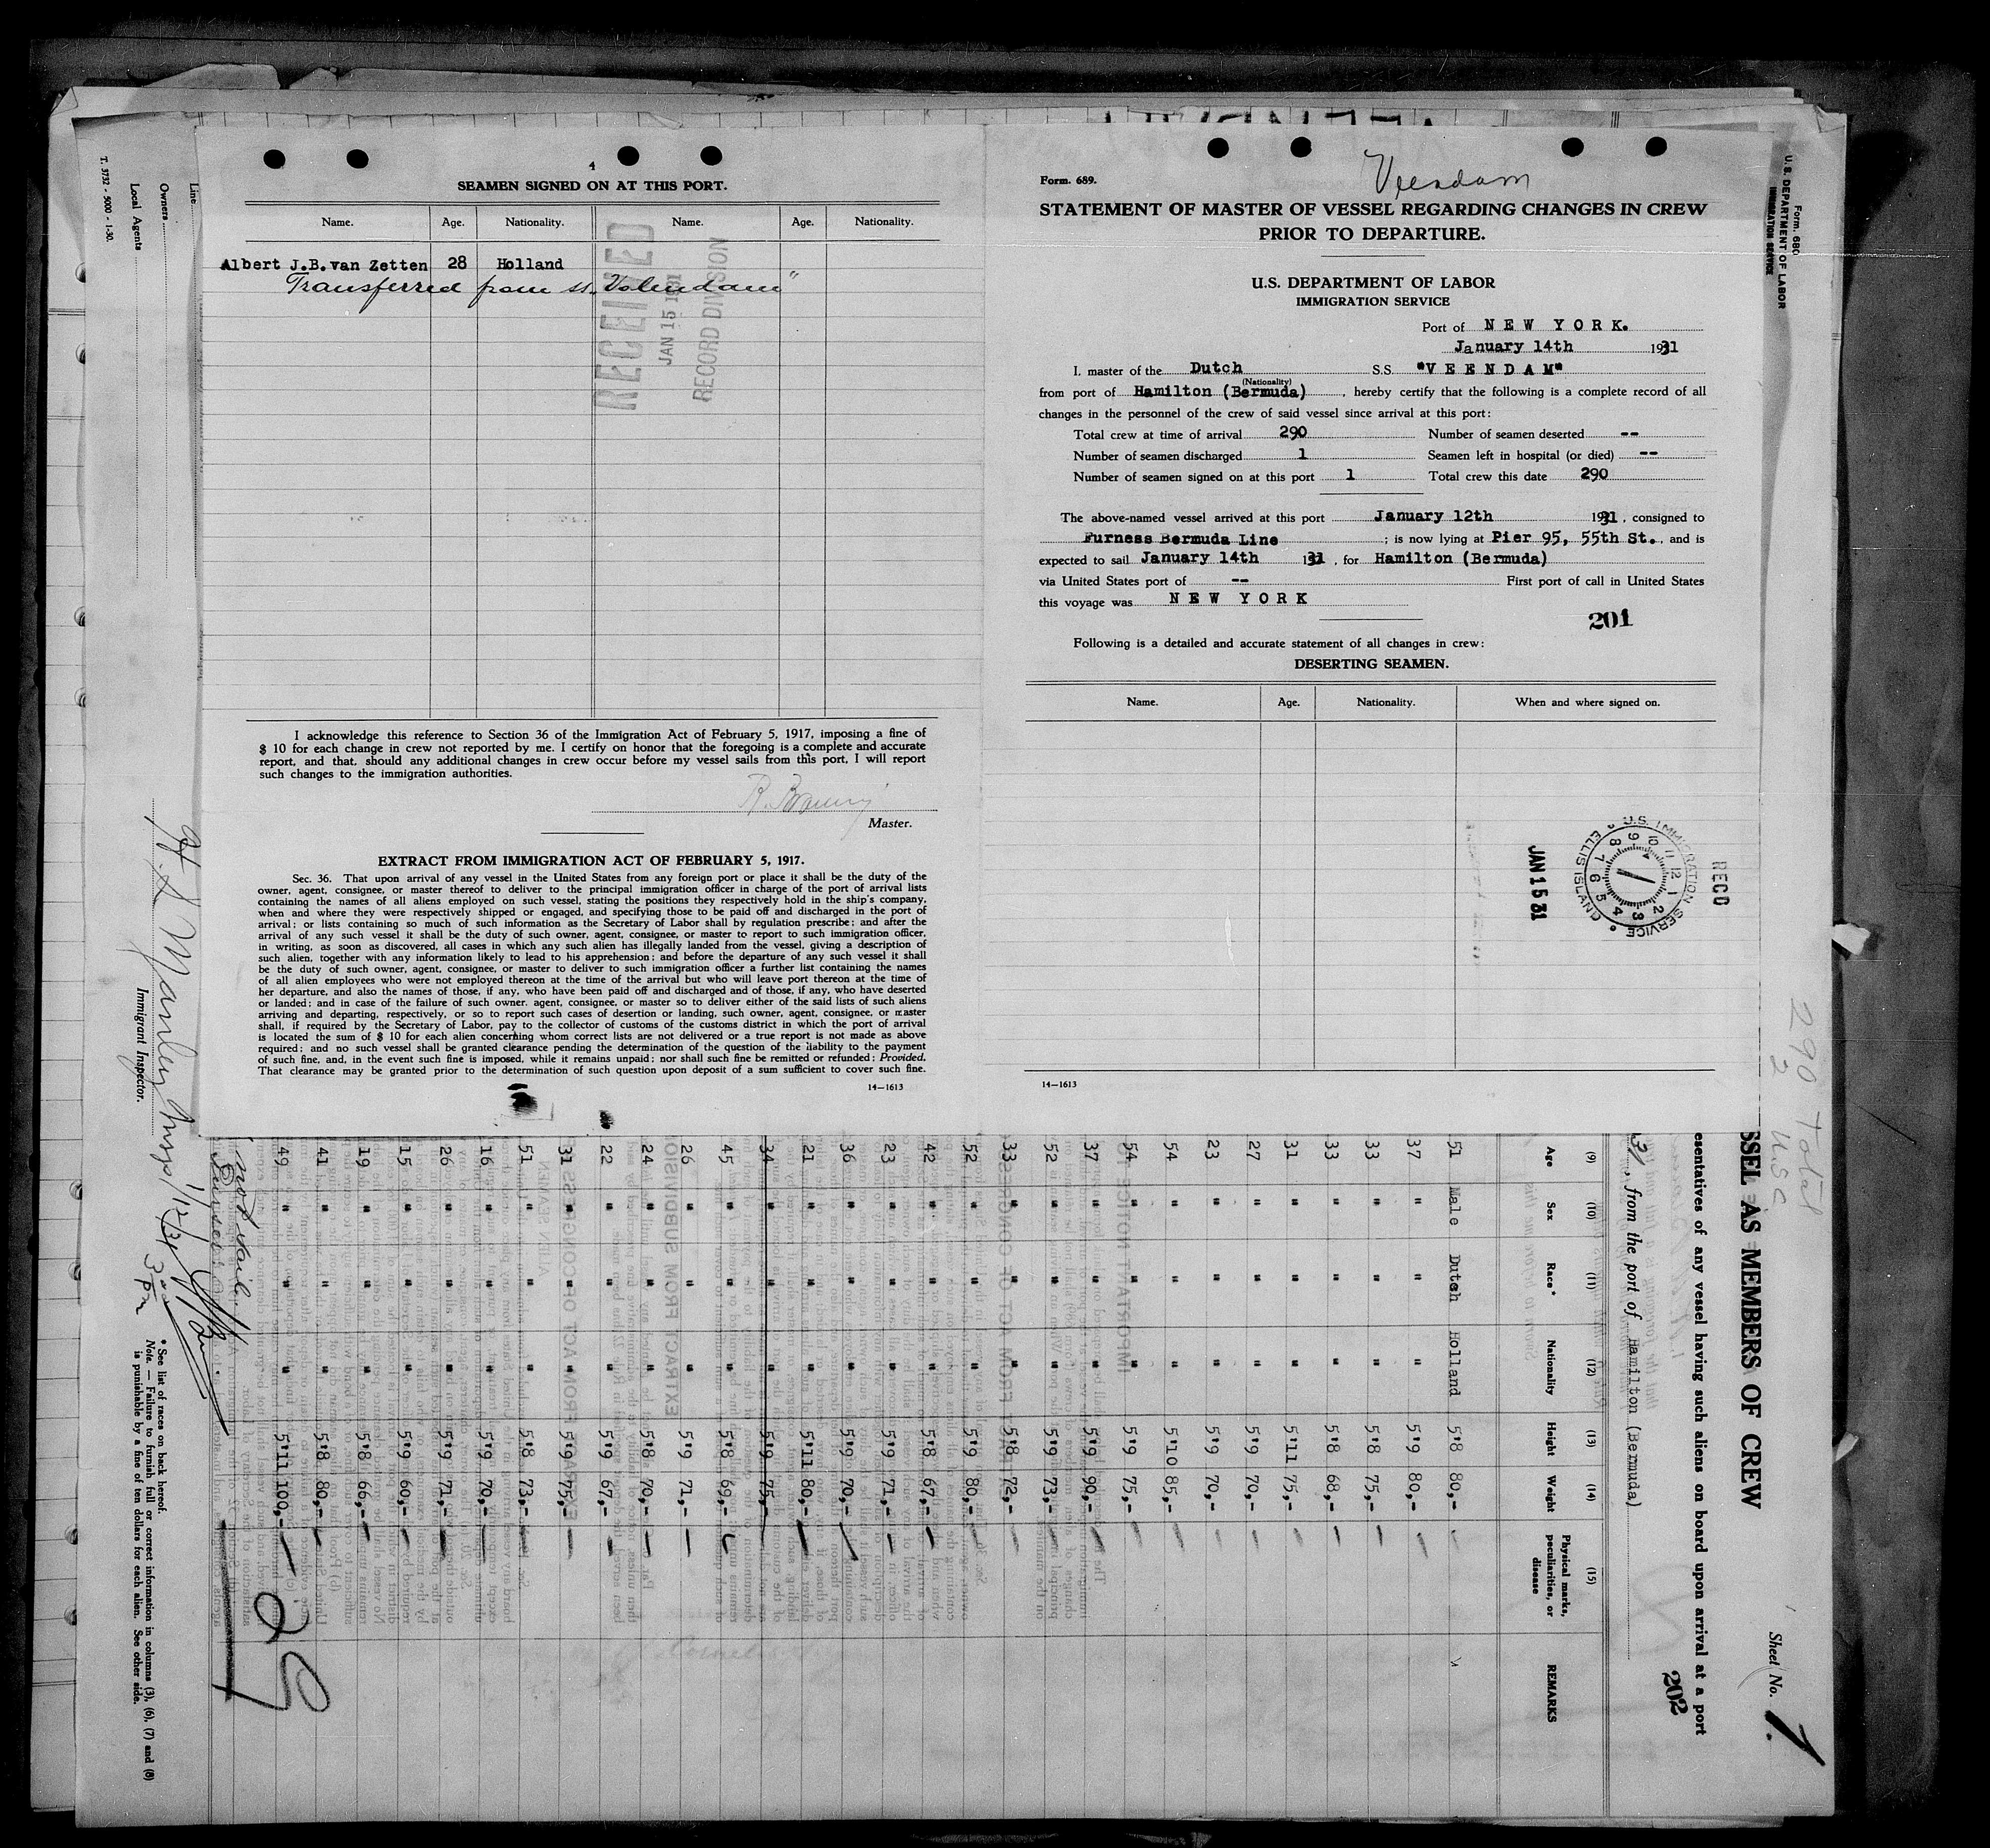 4
SEAMEN SIGNED ON AT THIS PORT.
Name. Age. Nationality. Name. Age. Nationality.
Albert J.B.van Zetten 28 Holland
Transferred from ss. Volendam"
RECEIVED
JAN 15 1931
RECORD DIVISION
I acknowledge this reference to Section 36 of the Immigration Act of February 5, 1917, imposing a fine of
$ 10 for each change in crew not reported by me. I certify on honor that the foregoing is a complete and accurate
report, and that, should any additional changes in crew occur before my vessel sails from this port, I will report
such changes to the immigration authorities.
Master.
EXTRACT FROM IMMIGRATION ACT OF FEBRUARY 5, 1917.
Sec. 36. That upon arrival of any vessel in the United States from any foreign port or place it shall be the duty of the
owner, agent, consignee, or master thereof to deliver to the principal immigration officer in charge of the port of arrival lists
containing the names of all aliens employed on such vessel, stating the positions they respectively hold in the ship's company,
when and where they were respectively shipped or engaged, and specifying those to be paid off and discharged in the port of
arrival; or lists containing so much of such information as the Secretary of Labor shall by regulation prescribe; and after the
arrival of any such vessel it shall be the duty of such owner, agent, consignee, or master to report to such immigration officer,
in writing, as soon as discovered, all cases in which any such alien has illegally landed from the vessel, giving a description of
such alien, together with any information likely to lead to his apprehension; and before the departure of any such vessel it shall
be the duty of such owner, agent, consignee, or master to deliver to such immigration officer a further list containing the names
of all alien employees who were not employed thereon at the time of the arrival but who will leave port thereon at the time of
her departure, and also the names of those, if any, who have been paid off and discharged and of those, if any, who have deserted
or landed; and in case of the failure of such owner, agent, consignee, or master so to deliver either of the said lists of such aliens
arriving and departing, respectively, or so to report such cases of desertion or landing, such owner, agent, consignee, or master
shall, if required by the Secretary of Labor, pay to the collector of customs of the customs district in which the port of arrival
is located the sum of $ 10 for each alien concerning whom correct lists are not delivered or a true report is not made as above
required; and no such vessel shall be granted clearance pending the determination of the question of the liability to the payment
of such fine, and, in the event such fine is imposed, while it remains unpaid; nor shall such fine be remitted or refunded; Provided,
That clearance may be granted prior to the determination of such question upon deposit of a sum sufficient to cover such fine.
14—1613
Form. 689.
Veendam
STATEMENT OF MASTER OF VESSEL REGARDING CHANGES IN CREW
PRIOR TO DEPARTURE.
U.S. DEPARTMENT OF LABOR
IMMIGRATION SERVICE
Port of NEW YORK.
January 14th 1931
I, master of the Dutch S.S. "VEENDAM"
(Nationality)
from port of Hamilton (Bermuda), hereby certify that the following is a complete record of all
changes in the personnel of the crew of said vessel since arrival at this port:
Total crew at time of arrival 290 Number of seamen deserted --
Number of seamen discharged 1 Seamen left in hospital (or died) --
Number of seamen signed on at this port 1 Total crew this date 290
The above-named vessel arrived at this port January 12th 1931, consigned to
Furness Bermuda Line ; is now lying at Pier 95, 55th St., and is
expected to sail January 14th 31, for Hamilton (Bermuda)
via United States port of -- First port of call in United States
this voyage was NEW YORK
201
Following is a detailed and accurate statement of all changes in crew:
DESERTING SEAMEN.
Name. Age. Nationality. When and where signed on.
RECD
U.S. IMMIGRATION SERVICE
ELLIS ISLAND
JAN 15 31
14—1613
Form. 680
U.S. DEPARTMENT OF LABOR
IMMIGRATION SERVICE
290 Total
2 U.S.C
Sheet No. 1.
SSEL AS MEMBERS OF CREW
esentatives of any vessel having such aliens on board upon arrival at a port
202
31, from the port of Hamilton (Bermuda)
(9) (10) (11) (12) (13) (14) (15)
Age Sex Race* Nationality Height Weight Physical marks, peculiarities, or disease REMARKS
51 Male Dutch Holland 5'8 80,-
37 " " " 5'9 80,-
33 " " " 5'8 75,-
33 " " " 5'8 68,-
31 " " " 5'11 75,-
27 " " " 5'9 70,-
23 " " " 5'9 70,-
54 " " " 5'10 85,-
54 " " " 5'9 75,-
37 " " " 5'9 90,-
52 " " " 5'9 73,-
33 " " " 5'8 72,-
52 " " " 5'9 80,-
42 " " " 5'8 67,-
23 " " " 5'9 71,-
36 " " " 5'9 70,-
21 " " " 5'11 80,-
34 " " " 5'9 75,-
45 " " " 5'8 69,-
26 " " " 5'9 71,-
24 " " " 5'8 70,-
22 " " " 5'9 67,-
31 " " " 5'9 75,-
51 " " " 5'8 73,-
16 " " " 5'9 70,-
26 " " " 5'9 71,-
15 " " " 5'9 60,-
19 " " " 5'8 66,-
41 " " " 5'8 80,-
49 " " " 5'11 100,-
29
Line
Owners
Local Agents
T. 3732 - 5000 - 1-30.
Immigrant Inspector.
* See list of races on back hereof.
Note. — Failure to furnish full or correct information in columns (3), (6), (7) and (8)
is punishable by a fine of ten dollars for each alien. See other side.